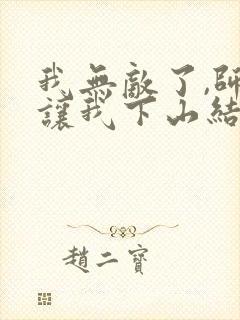 我無敵了,師
讓我下山結
趙二寶